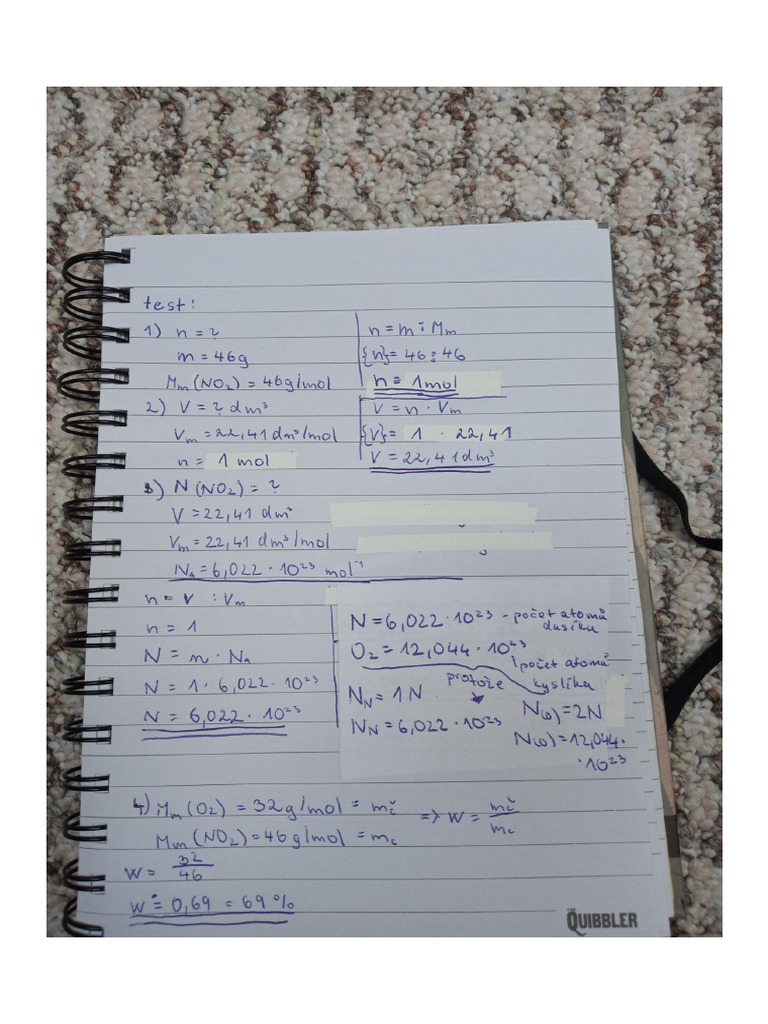 test:
1) n = ?
m = 46g
Mm (NO2) = 46g/mol
n = m : Mm
{n} = 46 : 46
n = 1mol
2) V = ? dm³
Vm = 22,41 dm³/mol
n = 1 mol
V = n · Vm
{V} = 1 · 22,41
V = 22,41 dm³
3) N (NO2) = ?
V = 22,41 dm³
Vm = 22,41 dm³/mol
NA = 6,022 · 10²³ mol⁻¹
n = V : Vm
n = 1
N = n · NA
N = 1 · 6,022 · 10²³
N = 6,022 · 10²³
N = 6,022 · 10²³ - počet atomů
dusíku
O2 = 12,044 · 10²³
počet atomů
kyslíka
protože
NN = 1N
NN = 6,022 · 10²³
N(O) = 2N
N(O) = 12,044 ·
· 10²³
4) Mm (O2) = 32g/mol = mč
Mm (NO2) = 46g/mol = mc
=> w = mč/mc
w = 32/46
w ≐ 0,69 = 69%
THE
QUIBBLER